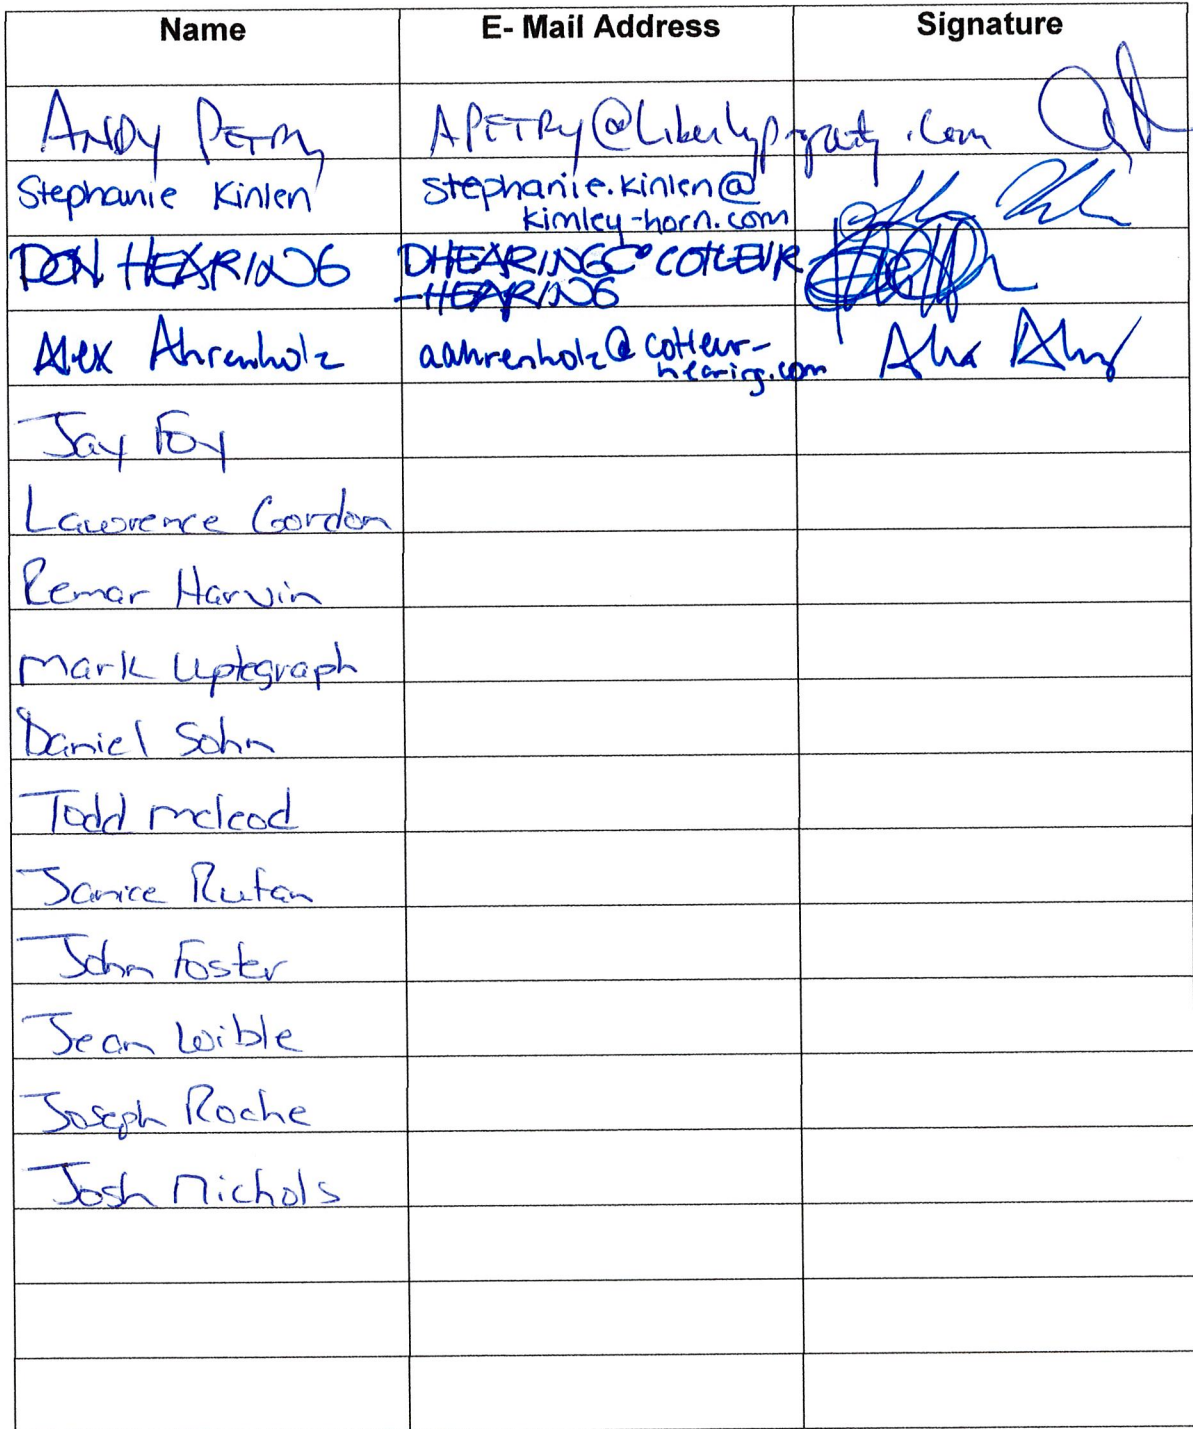 Name E- Mail Address Signature
ANDY PETRY APETRY@Libertyproperty.com
Stephanie Kinlen stephanie.kinlen@
kimley-horn.com
DON HEARING DHEARING@COTLEUR
-HEARING
Alex Ahrenholz aahrenholz@cotleur-
hearing.com
Jay Foy
Lawrence Gordon
Remar Harvin
Mark Uptegraph
Daniel Sohn
Todd mcleod
Janice Rutan
John Foster
Jean Wible
Joseph Roche
Josh Nichols